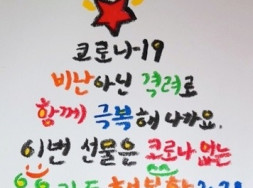 코로나-19
비난아닌 격려로
함께 극복해 나가요.
이번 선물은 코로나 없는